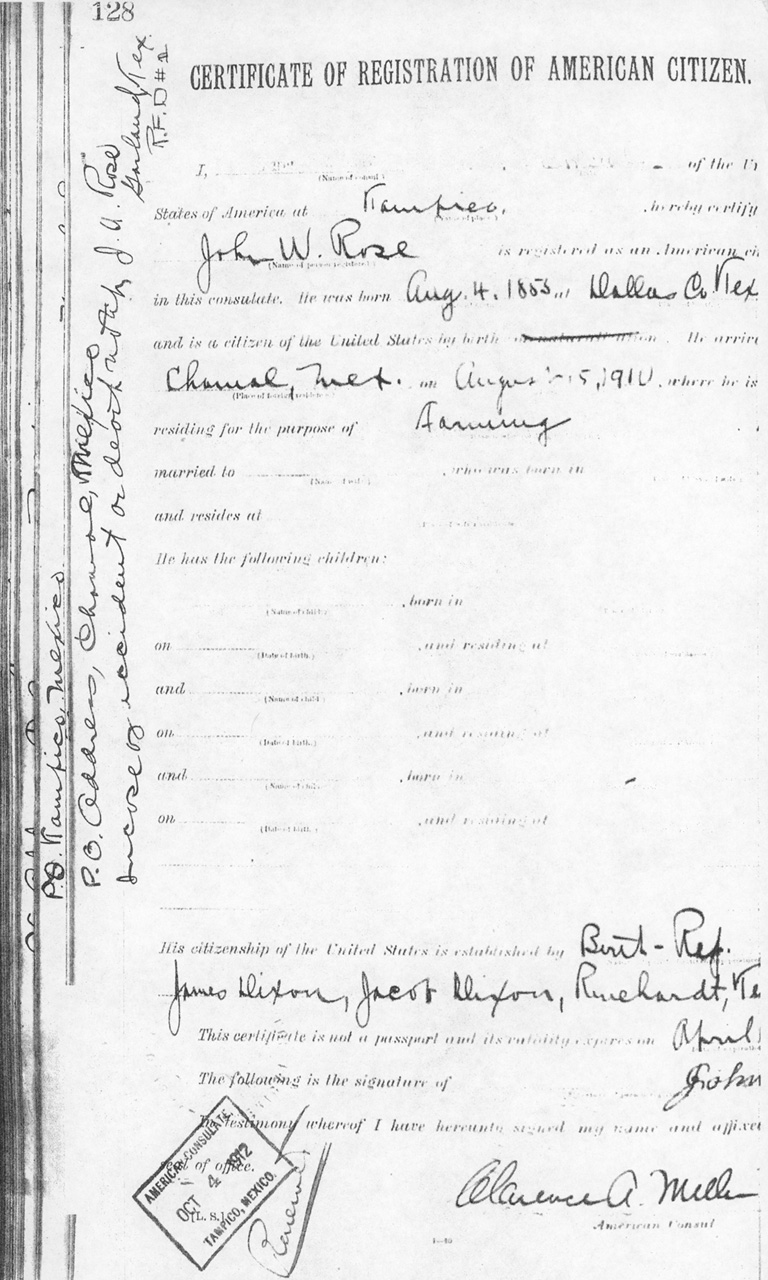 128
CERTIFICATE OF REGISTRATION OF AMERICAN CITIZEN.
I, of the U
(Name of consul)
States of America at Tampico, hereby certify
John W. Rose is registered as an American ci
(Name of person registered)
in this consulate. He was born Aug. 4, 1853, at Dallas Co. Tex
and is a citizen of the United States by birth or naturalization. He arrive
Chamal, Mex. on August 15, 1910, where he is
residing for the purpose of Farming
married to , who was born in
and resides at
He has the following children:
, born in
(Name of child)
on , and residing at
(Date of birth.)
and , born in
(Name of child)
on , and residing at
(Date of birth.)
and , born in
(Name of child)
on , and residing at
(Date of birth.)
His citizenship of the United States is established by Birth - Ref.
James Dixon, Jacob Dixon, Rinehardt, Te
This certificate is not a passport and its validity expires on April
The following is the signature of John
In testimony whereof I have hereunto signed my name and affixed
seal of office.
[L. S.]
Clarence A. Mille
American Consul
AMERICAN CONSULATE,
OCT 4 1912
TAMPICO, MEXICO.
Renewed
P.O. Tampico, Mexico
P.O. Address, Chamal, Mexico
In case of accident or death notify J. A. Rose
Garland Tex.
R.F.D #2